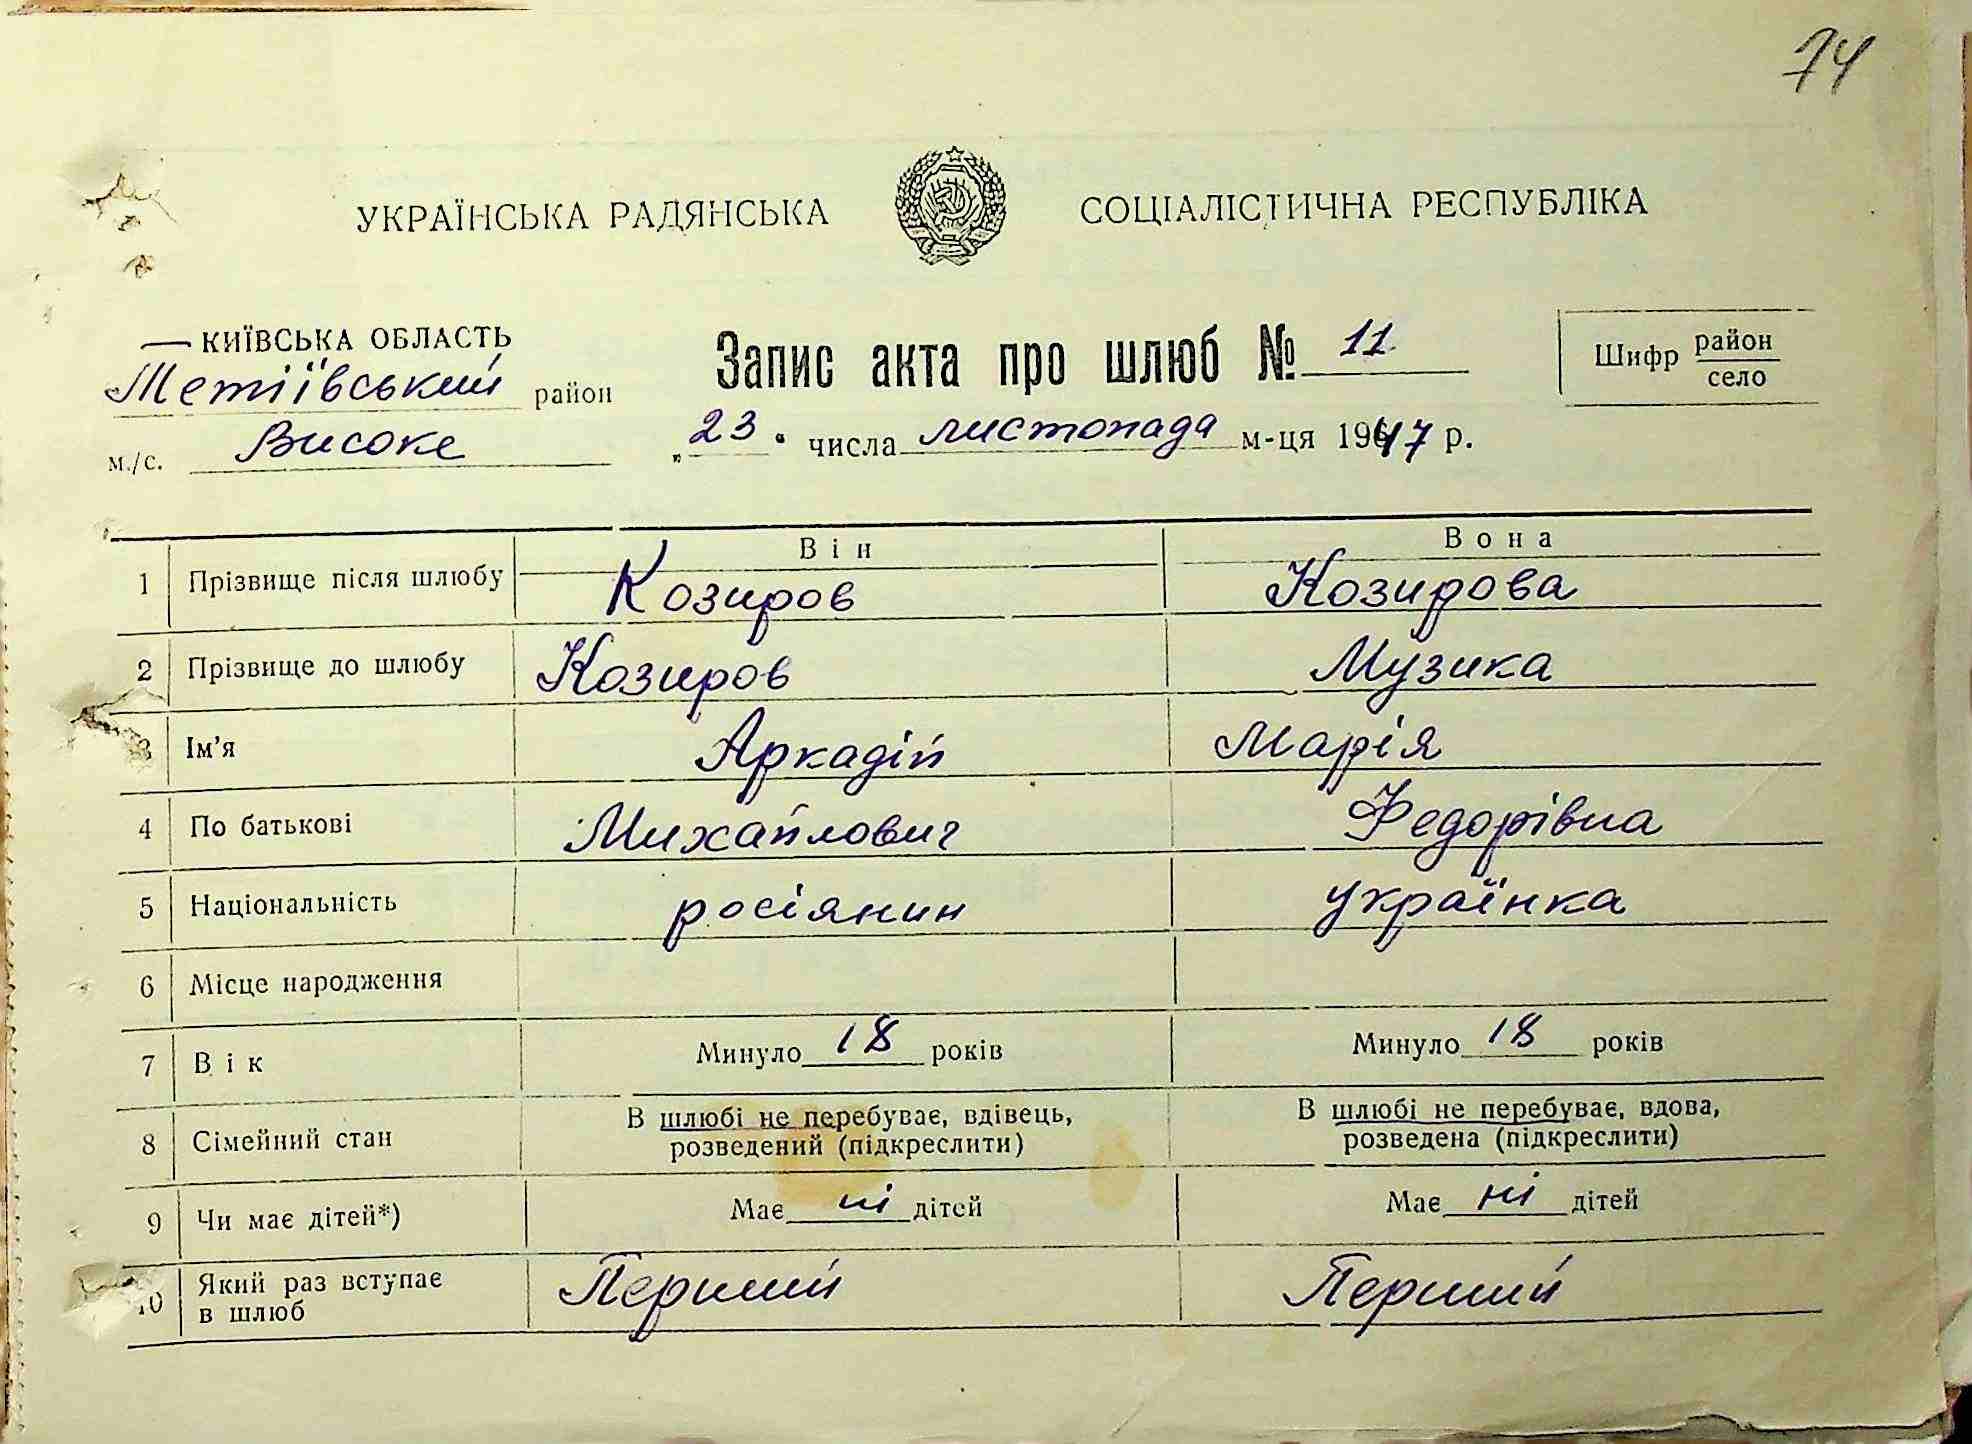 74
УКРАЇНСЬКА РАДЯНСЬКА СОЦІАЛІСТИЧНА РЕСПУБЛІКА
КИЇВСЬКА ОБЛАСТЬ
Запис акта про шлюб № 11
Шифр район
село
Тетіївський район
„23" числа листопада м-ця 1947 р.
м./с. Високе
Він Вона
1 Прізвище після шлюбу Козиров Козирова
2 Прізвище до шлюбу Козиров Музика
3 Ім'я Аркадій Марія
4 По батькові Михайлович Федорівна
5 Національність росіянин українка
6 Місце народження
7 Вік Минуло 18 років Минуло 18 років
8 Сімейний стан В шлюбі не перебуває, вдівець, розведений (підкреслити) В шлюбі не перебуває, вдова, розведена (підкреслити)
9 Чи має дітей*) Має ні дітей Має ні дітей
10 Який раз вступає в шлюб Перший Перший